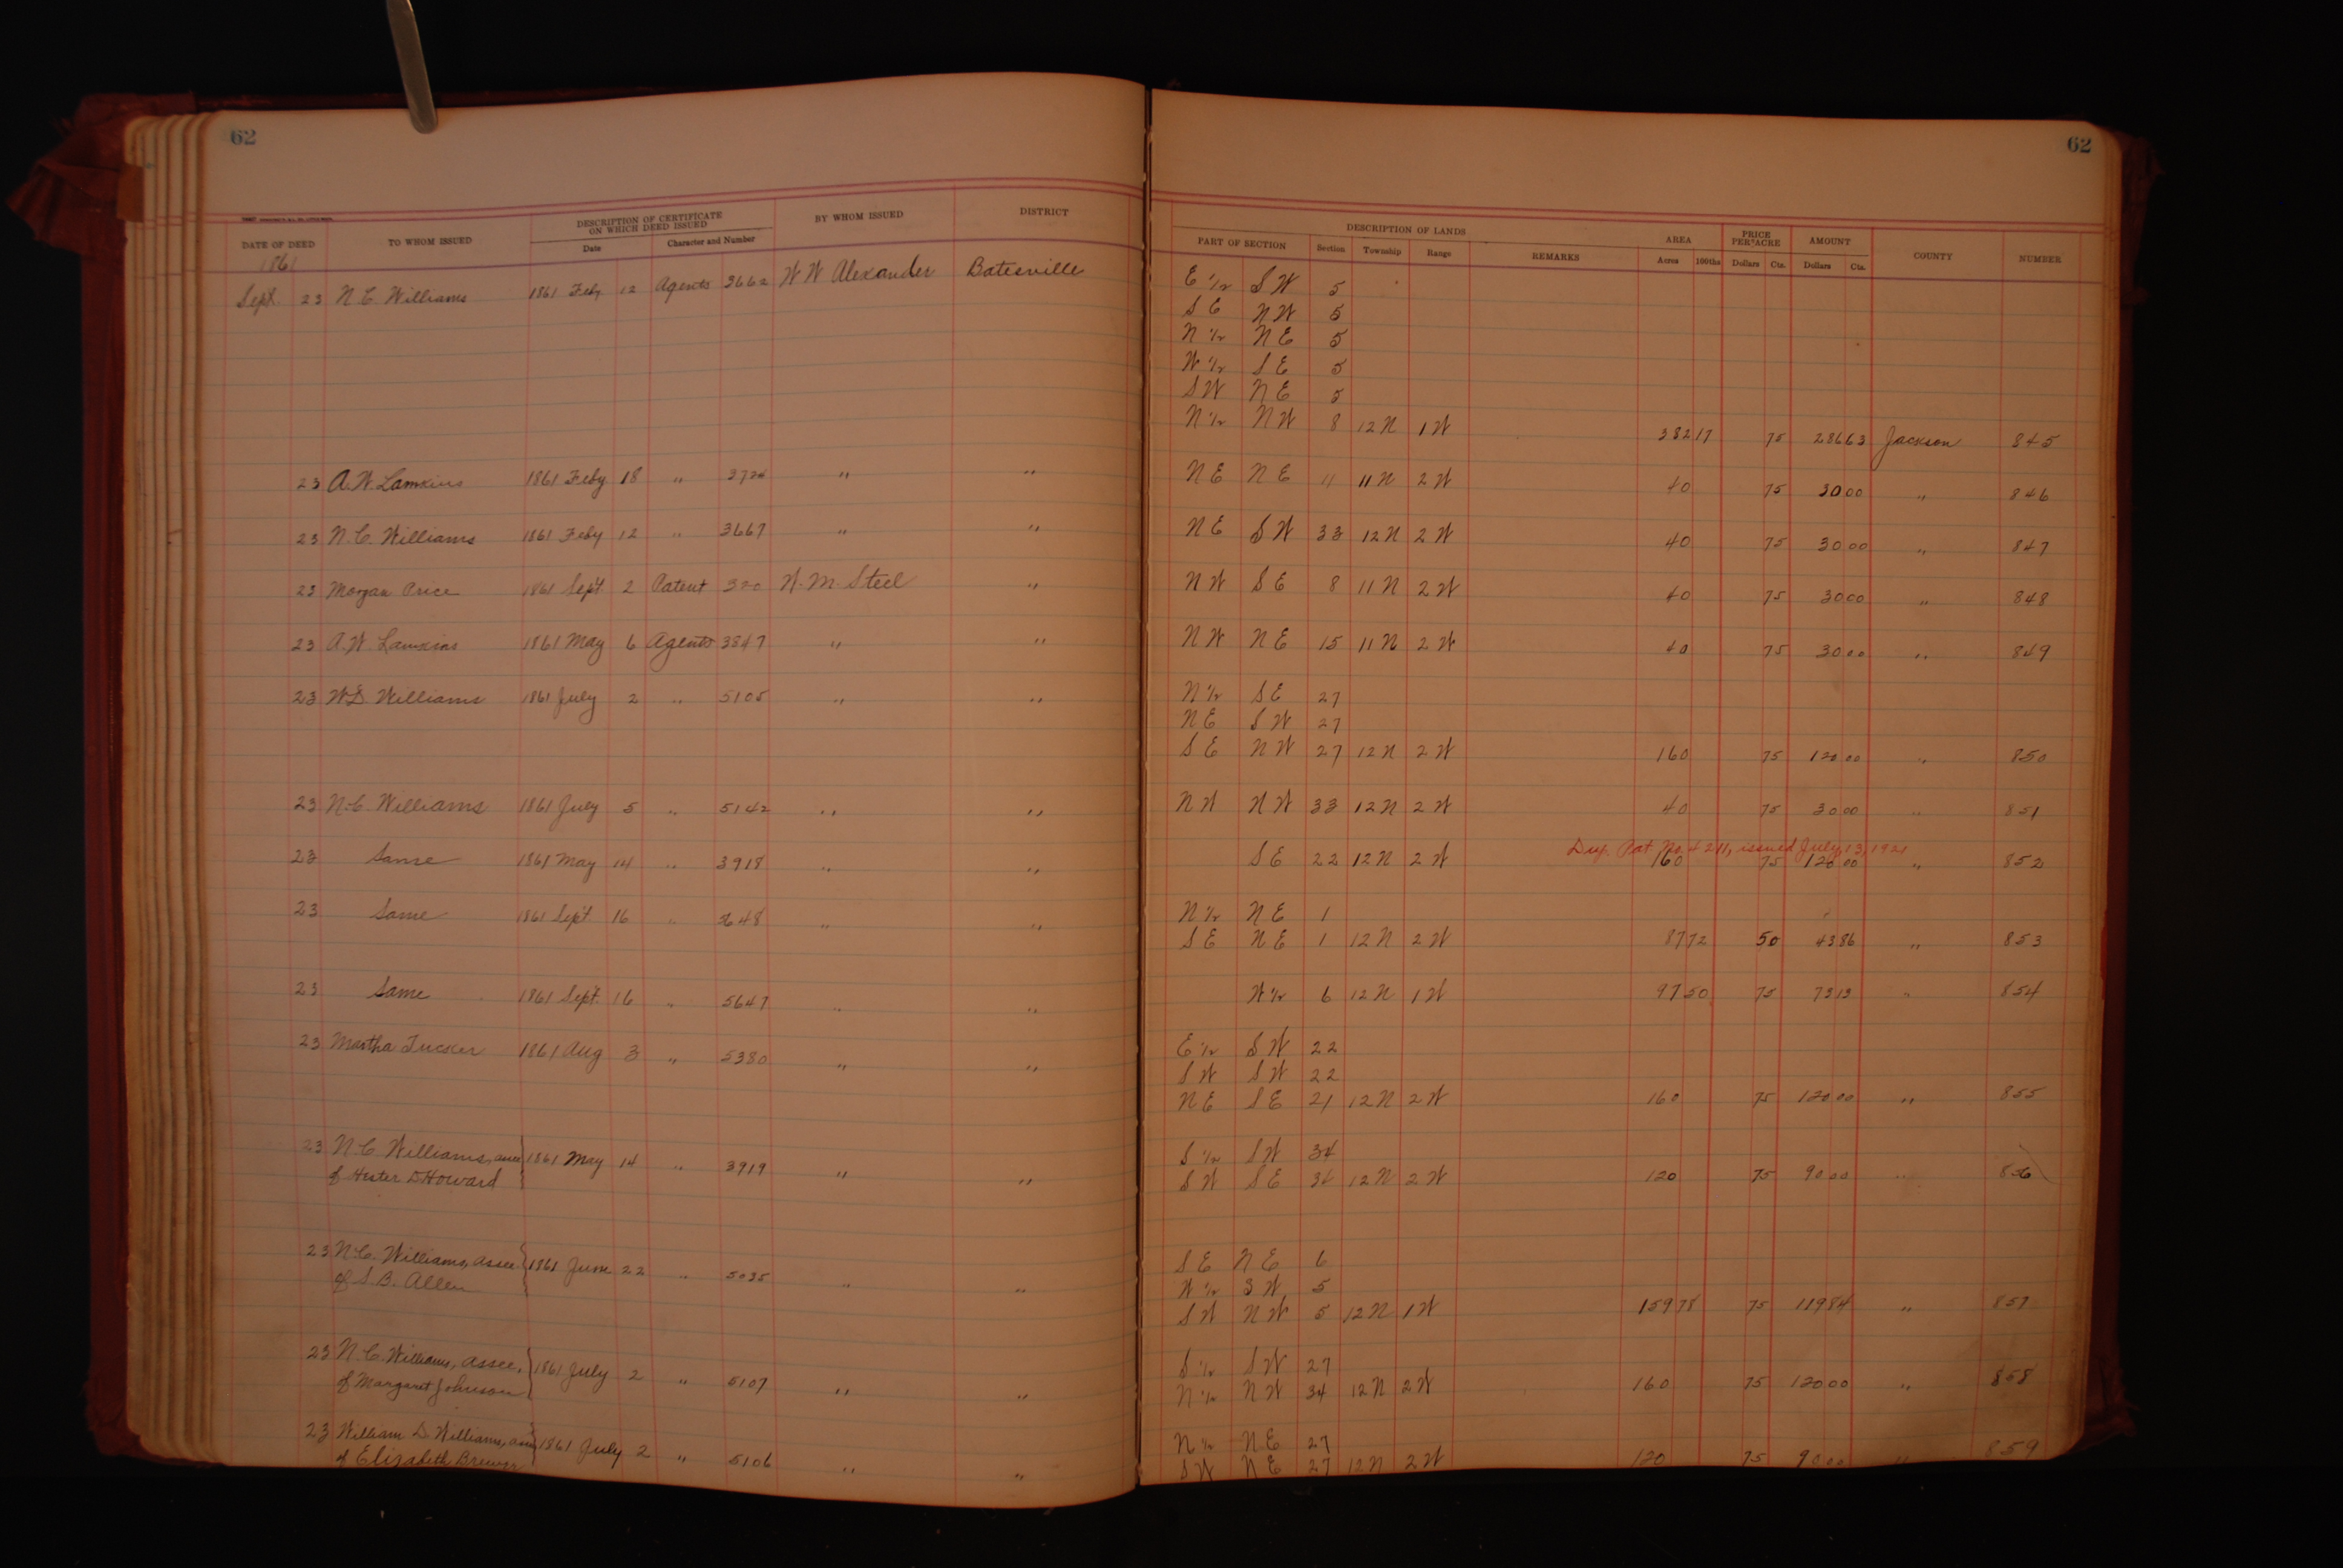 62
62
DATE OF DEED TO WHOM ISSUED DESCRIPTION OF CERTIFICATE ON WHICH DEED ISSUED BY WHOM ISSUED DISTRICT DESCRIPTION OF LANDS REMARKS AREA PRICE PER ACRE AMOUNT COUNTY NUMBER
Date Character and Number PART OF SECTION Section Township Range Acres 100ths Dollars Cts. Dollars Cts.
1861
Sept. 23 N C Williams 1861 Feby 12 Agents 3662 W W Alexander Batesville E 1/2 S W 5
S E N W 5
N 1/2 N E 5
W 1/2 S E 5
S W N E 5
N 1/2 N W 8 12 N 1 W 382 17 75 286 63 Jackson 845
23 A. W Lamkins 1861 Feby 18 " " " N E N E 11 11 N 2 W 40 75 30 00 " 846
23 N. C. Williams 1861 Feby 12 " 3667 " " N E S W 33 12 N 2 W 40 75 30 00 " 847
23 Morgan Price 1861 Sept. 2 Patent 320 W. M. Steel " N W S E 8 11 N 2 W 40 75 30 00 " 848
23 A. W. Lamkins 1861 May 6 Agents 3847 " " N W N E 15 11 N 2 W 40 75 30 00 " 849
23 W D. Williams 1861 July 2 " 5105 " " N 1/2 S E 27
N E S W 27
S E N W 27 12 N 2 W 160 75 120 00 " 850
23 N. C Williams 1861 July 5 " 5142 " " N W N W 33 12 N 2 W 40 75 30 00 " 851
Dup. Pat No. 4211, issued July 13, 1921
23 Same 1861 May 14 " 3918 " " S E 22 12 N 2 W 160 75 120 00 " 852
23 Same 1861 Sept. 16 " " " N 1/2 N E 1
S E N E 1 12 N 2 W 87 72 50 43 86 " 853
23 Same 1861 Sept. 16 " 5647 " " W 1/2 6 12 N 1 W 97 50 75 73 13 " 854
23 Martha Tucker 1861 Aug 3 " 5380 " " E 1/2 S W 22
S W S W 22
N E S E 21 12 N 2 W 160 75 120 00 " 855
23 N C Williams, assee 1861 May 14 " 3919 " " S 1/2 S W 34
of Hester D Howard S W S E 34 12 N 2 W 120 75 90 00 " 856
23 N. C. Williams, assee 1861 June 22 " 5035 " " S E N E 6
of S B. Allen W 1/2 S W 5
S W N W 5 12 N 1 W 159 78 75 119 84 " 857
23 N. C. Williams, assee, 1861 July 2 " 5107 " " S 1/2 S W 27
of Margaret Johnson N 1/2 N W 34 12 N 2 W 160 75 120 00 " 858
23 William D. Williams, assee 1861 July 2 " 5106 " " N 1/2 N E 27
of Elizabeth Brewer S W N E 27 12 N 2 W 120 75 90 00 " 859